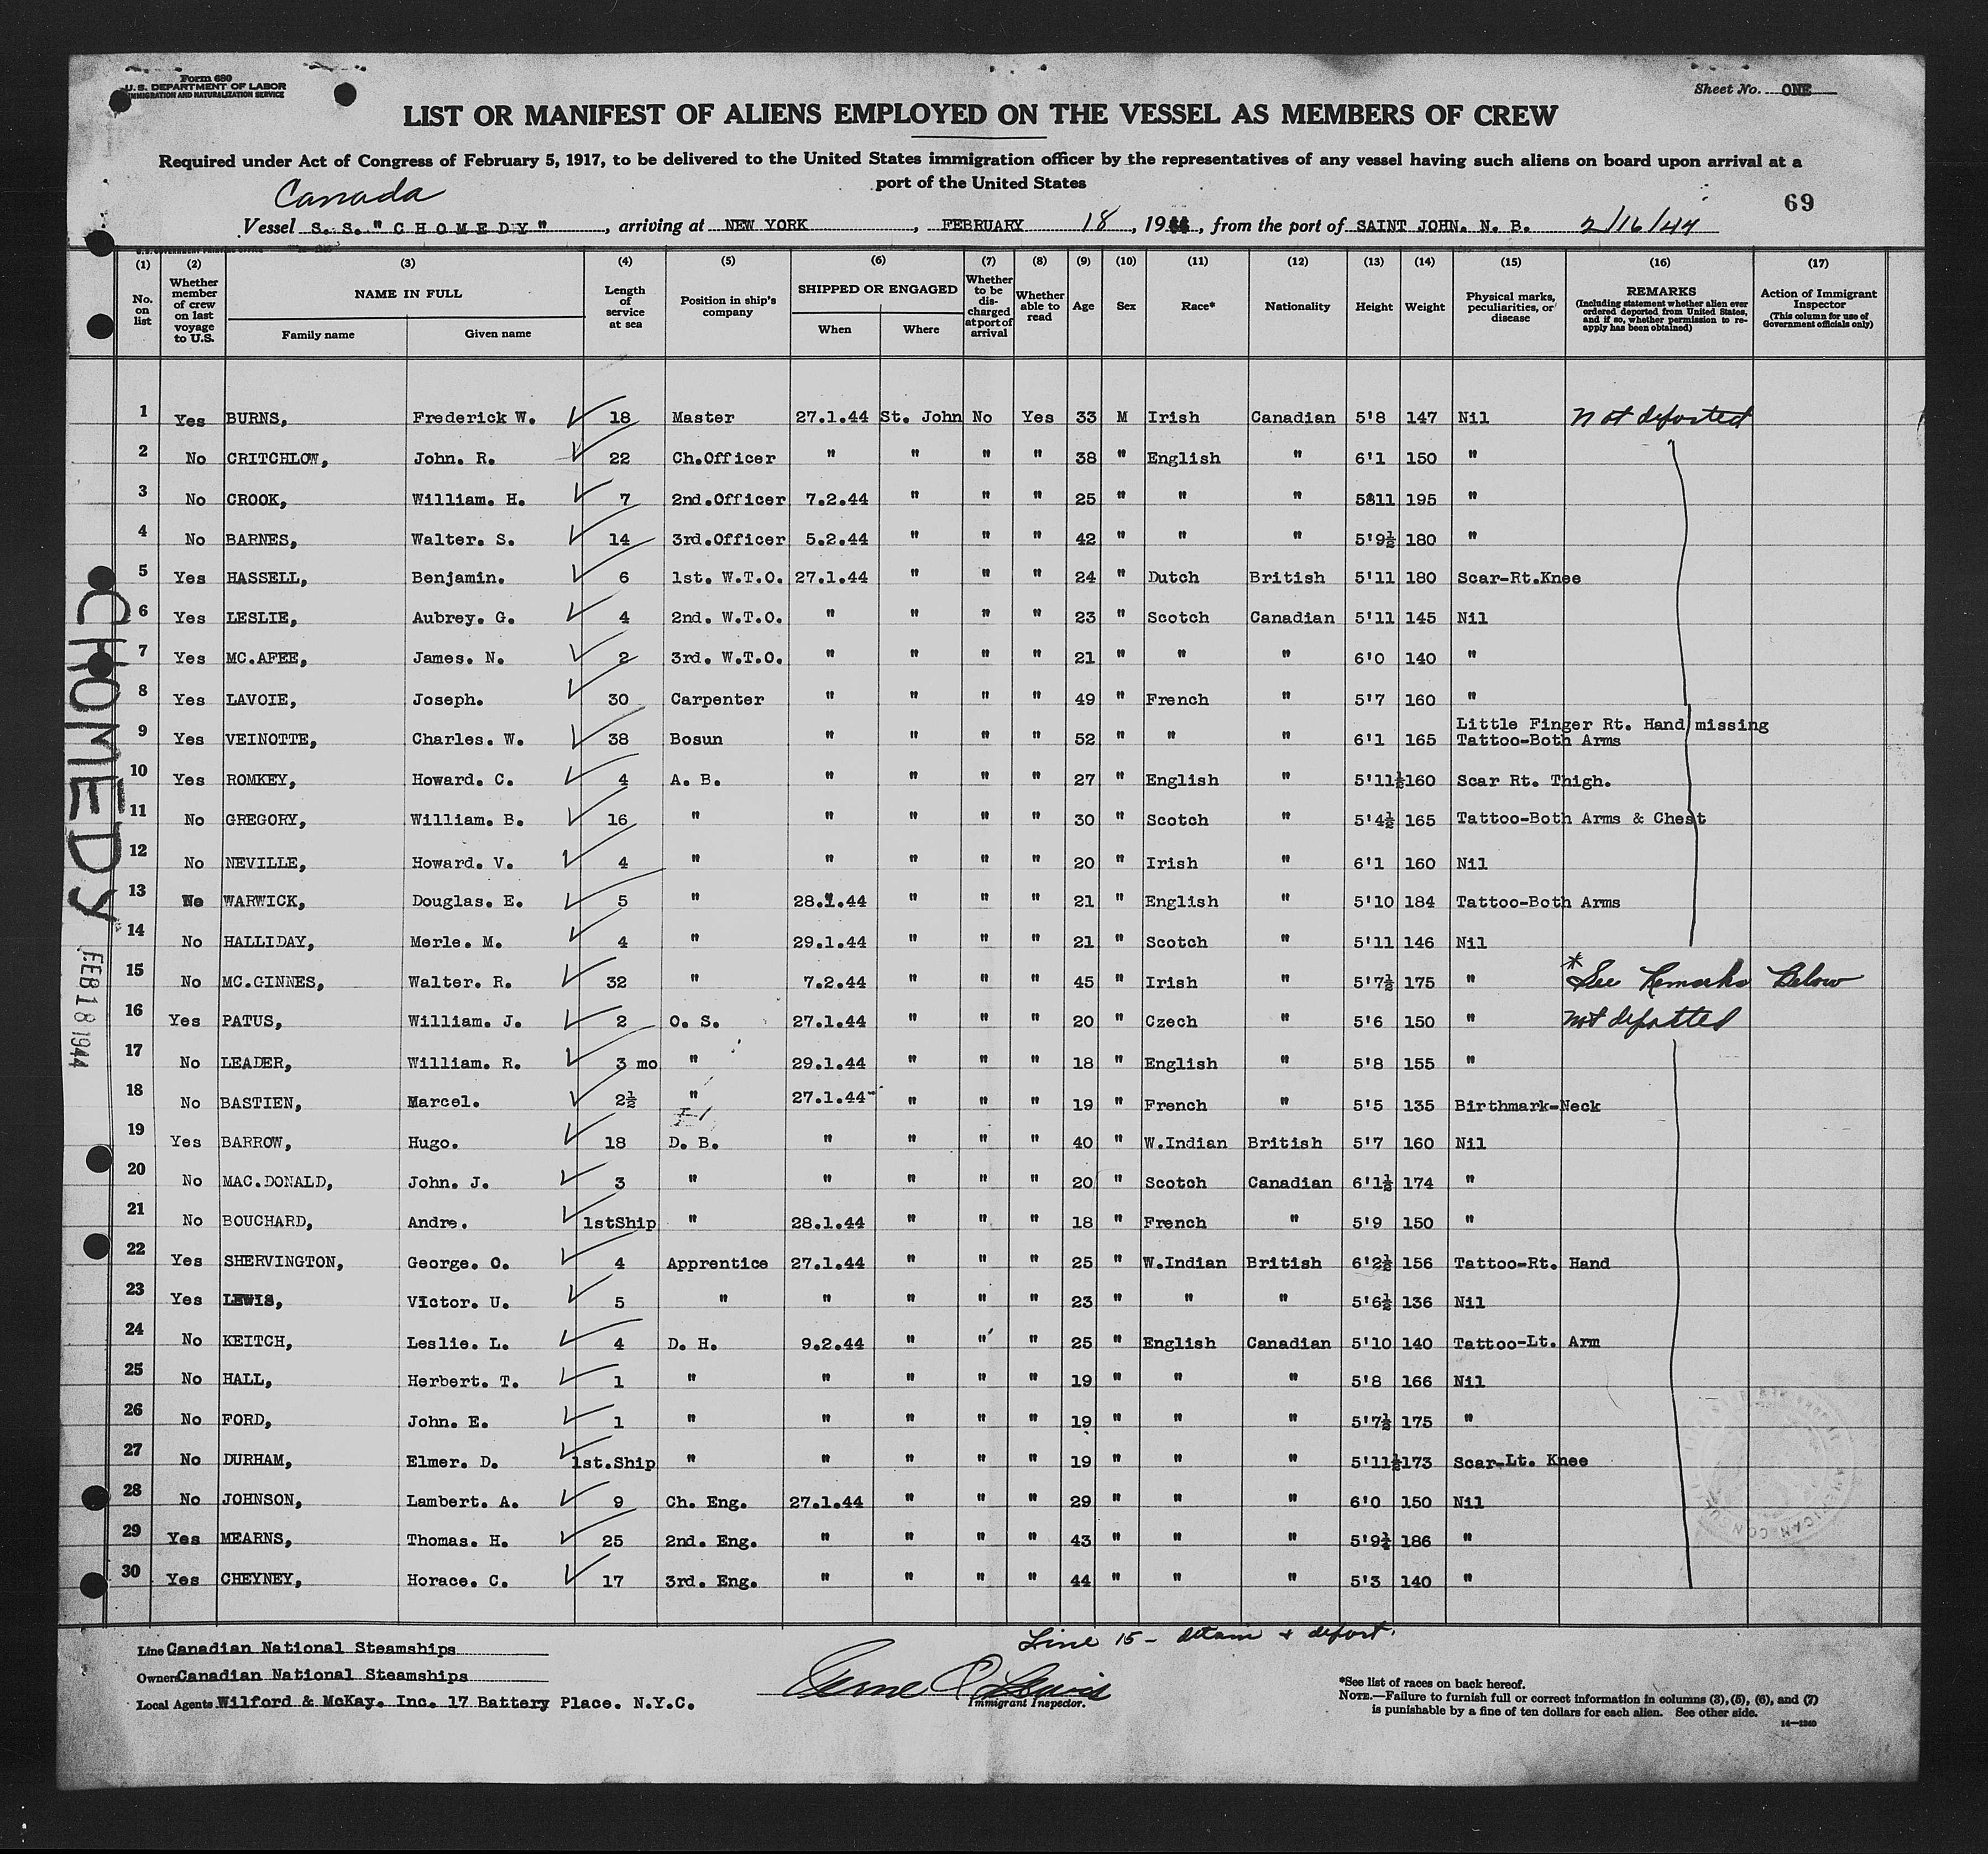 Form 680
U. S. DEPARTMENT OF LABOR
IMMIGRATION AND NATURALIZATION SERVICE
Sheet No. ONE
LIST OR MANIFEST OF ALIENS EMPLOYED ON THE VESSEL AS MEMBERS OF CREW
Required under Act of Congress of February 5, 1917, to be delivered to the United States immigration officer by the representatives of any vessel having such aliens on board upon arrival at a
port of the United States
Canada
69
Vessel S. S. "CHOMEDY", arriving at NEW YORK, FEBRUARY 18, 1944, from the port of SAINT JOHN. N. B. 2/16/44
(1) (2) (3) (4) (5) (6) (7) (8) (9) (10) (11) (12) (13) (14) (15) (16) (17)
No. on list | Whether member of crew on last voyage to U.S. | NAME IN FULL Family name Given name | Length of service at sea | Position in ship's company | SHIPPED OR ENGAGED When Where | Whether to be discharged at port of arrival | Whether able to read | Age | Sex | Race* | Nationality | Height | Weight | Physical marks, peculiarities, or disease | REMARKS (Including statement whether alien ever ordered deported from United States, and if so, whether permission to re-apply has been obtained) | Action of Immigrant Inspector (This column for use of Government officials only)
1 Yes BURNS, Frederick W. ✓ 18 Master 27.1.44 St. John No Yes 33 M Irish Canadian 5'8 147 Nil Not deported
2 No CRITCHLOW, John. R. ✓ 22 Ch.Officer " " " " 38 " English " 6'1 150 "
3 No CROOK, William. H. ✓ 7 2nd.Officer 7.2.44 " " " 25 " " " 5811 195 "
4 No BARNES, Walter. S. ✓ 14 3rd.Officer 5.2.44 " " " 42 " " " 5'9½ 180 "
5 Yes HASSELL, Benjamin. ✓ 6 1st. W.T.O. 27.1.44 " " " 24 " Dutch British 5'11 180 Scar-Rt.Knee
6 Yes LESLIE, Aubrey. G. ✓ 4 2nd. W.T.O. " " " " 23 " Scotch Canadian 5'11 145 Nil
7 Yes MC.AFEE, James. N. ✓ 2 3rd. W.T.O. " " " " 21 " " " 6'0 140 "
8 Yes LAVOIE, Joseph. ✓ 30 Carpenter " " " " 49 " French " 5'7 160 "
9 Yes VEINOTTE, Charles. W. ✓ 38 Bosun " " " " 52 " " " 6'1 165 Little Finger Rt. Hand missing
Tattoo-Both Arms
10 Yes ROMKEY, Howard. C. ✓ 4 A. B. " " " " 27 " English " 5'11½ 160 Scar Rt. Thigh.
11 No GREGORY, William. B. ✓ 16 " " " " " 30 " Scotch " 5'4½ 165 Tattoo-Both Arms & Chest
12 No NEVILLE, Howard. V. ✓ 4 " " " " " 20 " Irish " 6'1 160 Nil
13 No WARWICK, Douglas. E. ✓ 5 " 28.1.44 " " " 21 " English " 5'10 184 Tattoo-Both Arms
14 No HALLIDAY, Merle. M. ✓ 4 " 29.1.44 " " " 21 " Scotch " 5'11 146 Nil
15 No MC.GINNES, Walter. R. ✓ 32 " 7.2.44 " " " 45 " Irish " 5'7½ 175 " * See Remarks Below
16 Yes PATUS, William. J. ✓ 2 O. S. 27.1.44 " " " 20 " Czech " 5'6 150 " Not deported
17 No LEADER, William. R. ✓ 3 mo " 29.1.44 " " " 18 " English " 5'8 155 "
18 No BASTIEN, Marcel. ✓ 2½ " 27.1.44 " " " 19 " French " 5'5 135 Birthmark-Neck
19 Yes BARROW, Hugo. ✓ 18 D. B. " " " " 40 " W.Indian British 5'7 160 Nil
20 No MAC.DONALD, John. J. ✓ 3 " " " " " 20 " Scotch Canadian 6'1½ 174 "
21 No BOUCHARD, Andre. ✓ 1stShip " 28.1.44 " " " 18 " French " 5'9 150 "
22 Yes SHERVINGTON, George. O. ✓ 4 Apprentice 27.1.44 " " " 25 " W.Indian British 6'2½ 156 Tattoo-Rt. Hand
23 Yes LEWIS, Victor. U. ✓ 5 " " " " " 23 " " " 5'6½ 136 Nil
24 No KEITCH, Leslie. L. ✓ 4 D. H. 9.2.44 " " " 25 " English Canadian 5'10 140 Tattoo-Lt. Arm
25 No HALL, Herbert. T. ✓ 1 " " " " " 19 " " " 5'8 166 Nil
26 No FORD, John. E. ✓ 1 " " " " " 19 " " " 5'7½ 175 "
27 No DURHAM, Elmer. D. ✓ 1st.Ship " " " " " 19 " " " 5'11½ 173 Scar-Lt. Knee
28 No JOHNSON, Lambert. A. ✓ 9 Ch. Eng. 27.1.44 " " " 29 " " " 6'0 150 Nil
29 Yes MEARNS, Thomas. H. ✓ 25 2nd. Eng. " " " " 43 " " " 5'9½ 186 "
30 Yes CHEYNEY, Horace. C. ✓ 17 3rd. Eng. " " " " 44 " " " 5'3 140 "
CHOMEDY
FEB 18 1944
Line 15 - detain & deport.
Line Canadian National Steamships
Owner Canadian National Steamships
Local Agents Wilford & McKay. Inc. 17 Battery Place. N.Y.C.
Immigrant Inspector.
*See list of races on back hereof.
NOTE.—Failure to furnish full or correct information in columns (3), (5), (6), and (7)
is punishable by a fine of ten dollars for each alien. See other side.
14—1240